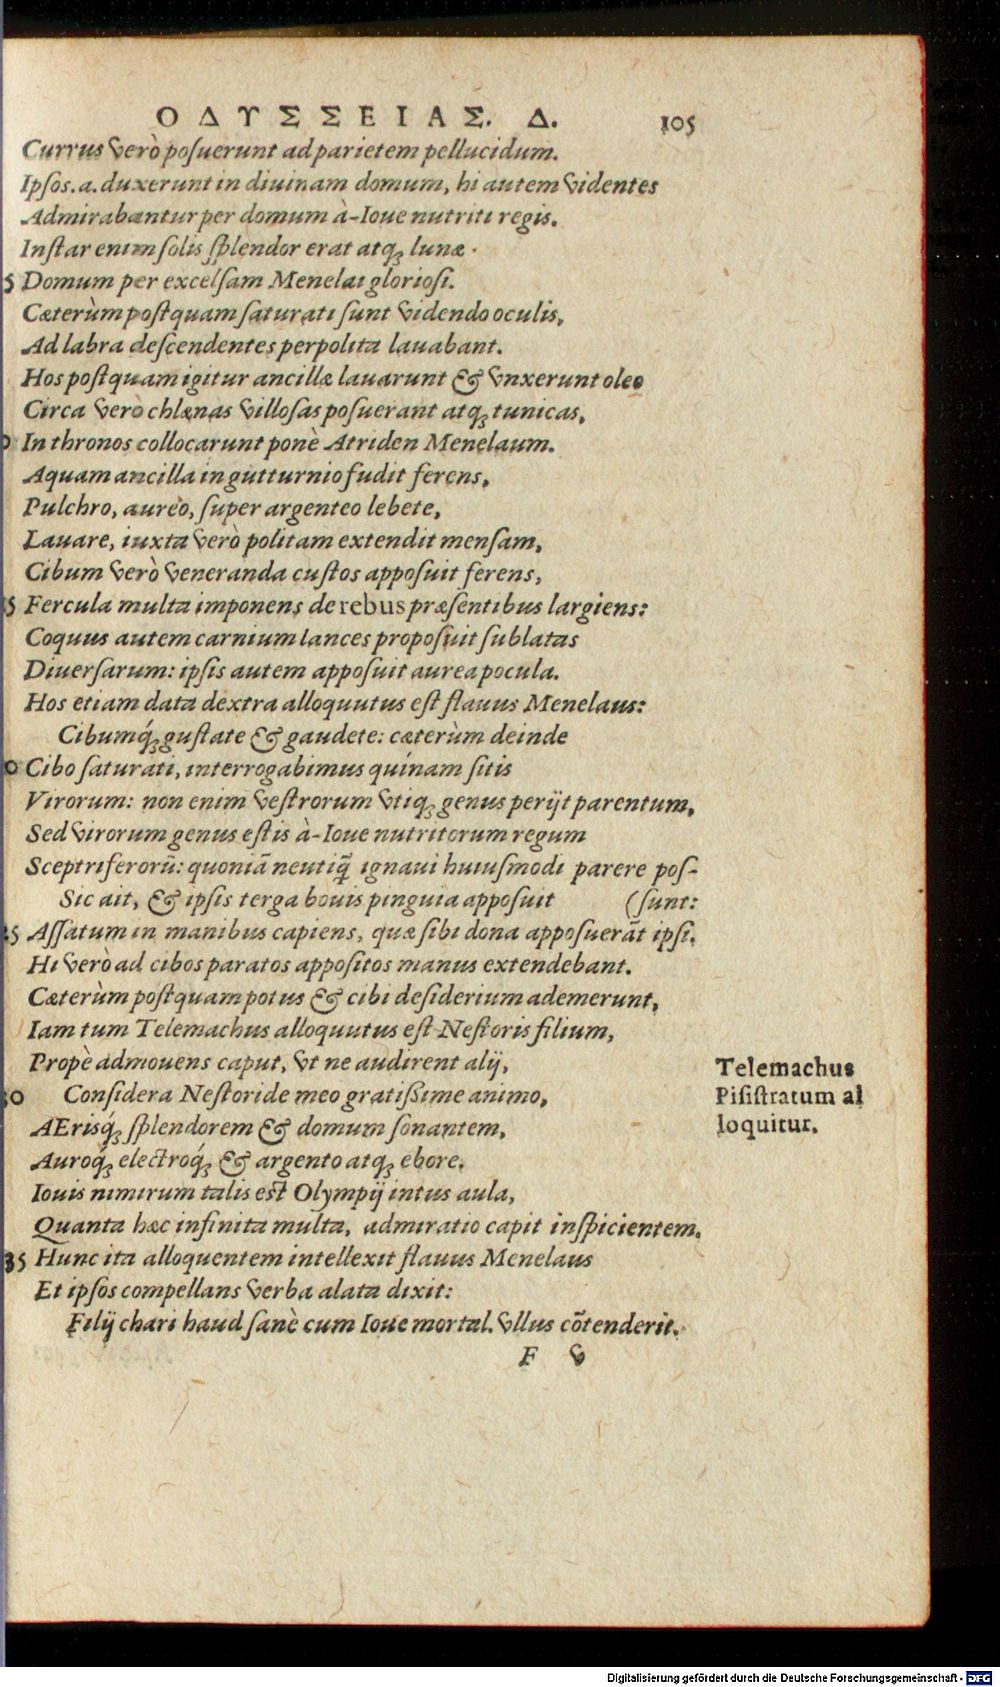 ΟΔΥΣΣΕΙΑΣ. Δ. 105
Currus verò posuerunt ad parietem pellucidum.
Ipsos.a.duxerunt in diuinam domum, hi autem videntes
Admirabantur per domum à-Ioue nutriti regis.
Instar enim solis splendor erat atq; lunæ.
5 Domum per excelsam Menelai gloriosi.
Cæterùm postquam saturati sunt videndo oculis,
Ad labra descendentes perpolita lauabant.
Hos postquam igitur ancillæ lauarunt & vnxerunt oleo
Circa verò chlænas villosas posuerant atq; tunicas,
0 In thronos collocarunt ponè Atriden Menelaum.
Aquam ancilla in gutturnio fudit ferens,
Pulchro, aureo, super argenteo lebete,
Lauare, iuxta verò politam extendit mensam,
Cibum verò veneranda custos apposuit ferens,
5 Fercula multa imponens de rebus præsentibus largiens:
Coquus autem carnium lances proposuit sublatas
Diuersarum: ipsis autem apposuit aurea pocula.
Hos etiam data dextra alloquutus est flauus Menelaus:
Cibumq́; gustate & gaudete: cæterùm deinde
0 Cibo saturati, interrogabimus quínam sitis
Virorum: non enim vestrorum vtiq; genus perijt parentum,
Sed virorum genus estis à-Ioue nutritorum regum
Sceptriferorũ: quoniã neutiq̃ ignaui huiusmodi parere pos-
Sic ait, & ipsis terga bouis pinguia apposuit (sunt:
25 Assatum in manibus capiens, quæ sibi dona apposuerãt ipsi.
Hi verò ad cibos paratos appositos manus extendebant.
Cæterùm postquam potus & cibi desiderium ademerunt,
Iam tum Telemachus alloquutus est Nestoris filium,
Propè admouens caput, vt ne audirent alij,
30 Considera Nestoride meo gratißime animo,
AErisq́; splendorem & domum sonantem,
Auroq́; electroq́; & argento atq; ebore.
Iouis nimirum talis est Olympij intus aula,
Quanta hæc infinita multa, admiratio capit inspicientem.
35 Hunc ita alloquentem intellexit flauus Menelaus
Et ipsos compellans verba alata dixit:
Filij chari haud sanè cum Ioue mortal. vllus cõtenderit.
F v
Telemachus
Pisistratum al
loquitur.
Digitalisierung gefördert durch die Deutsche Forschungsgemeinschaft - DFG